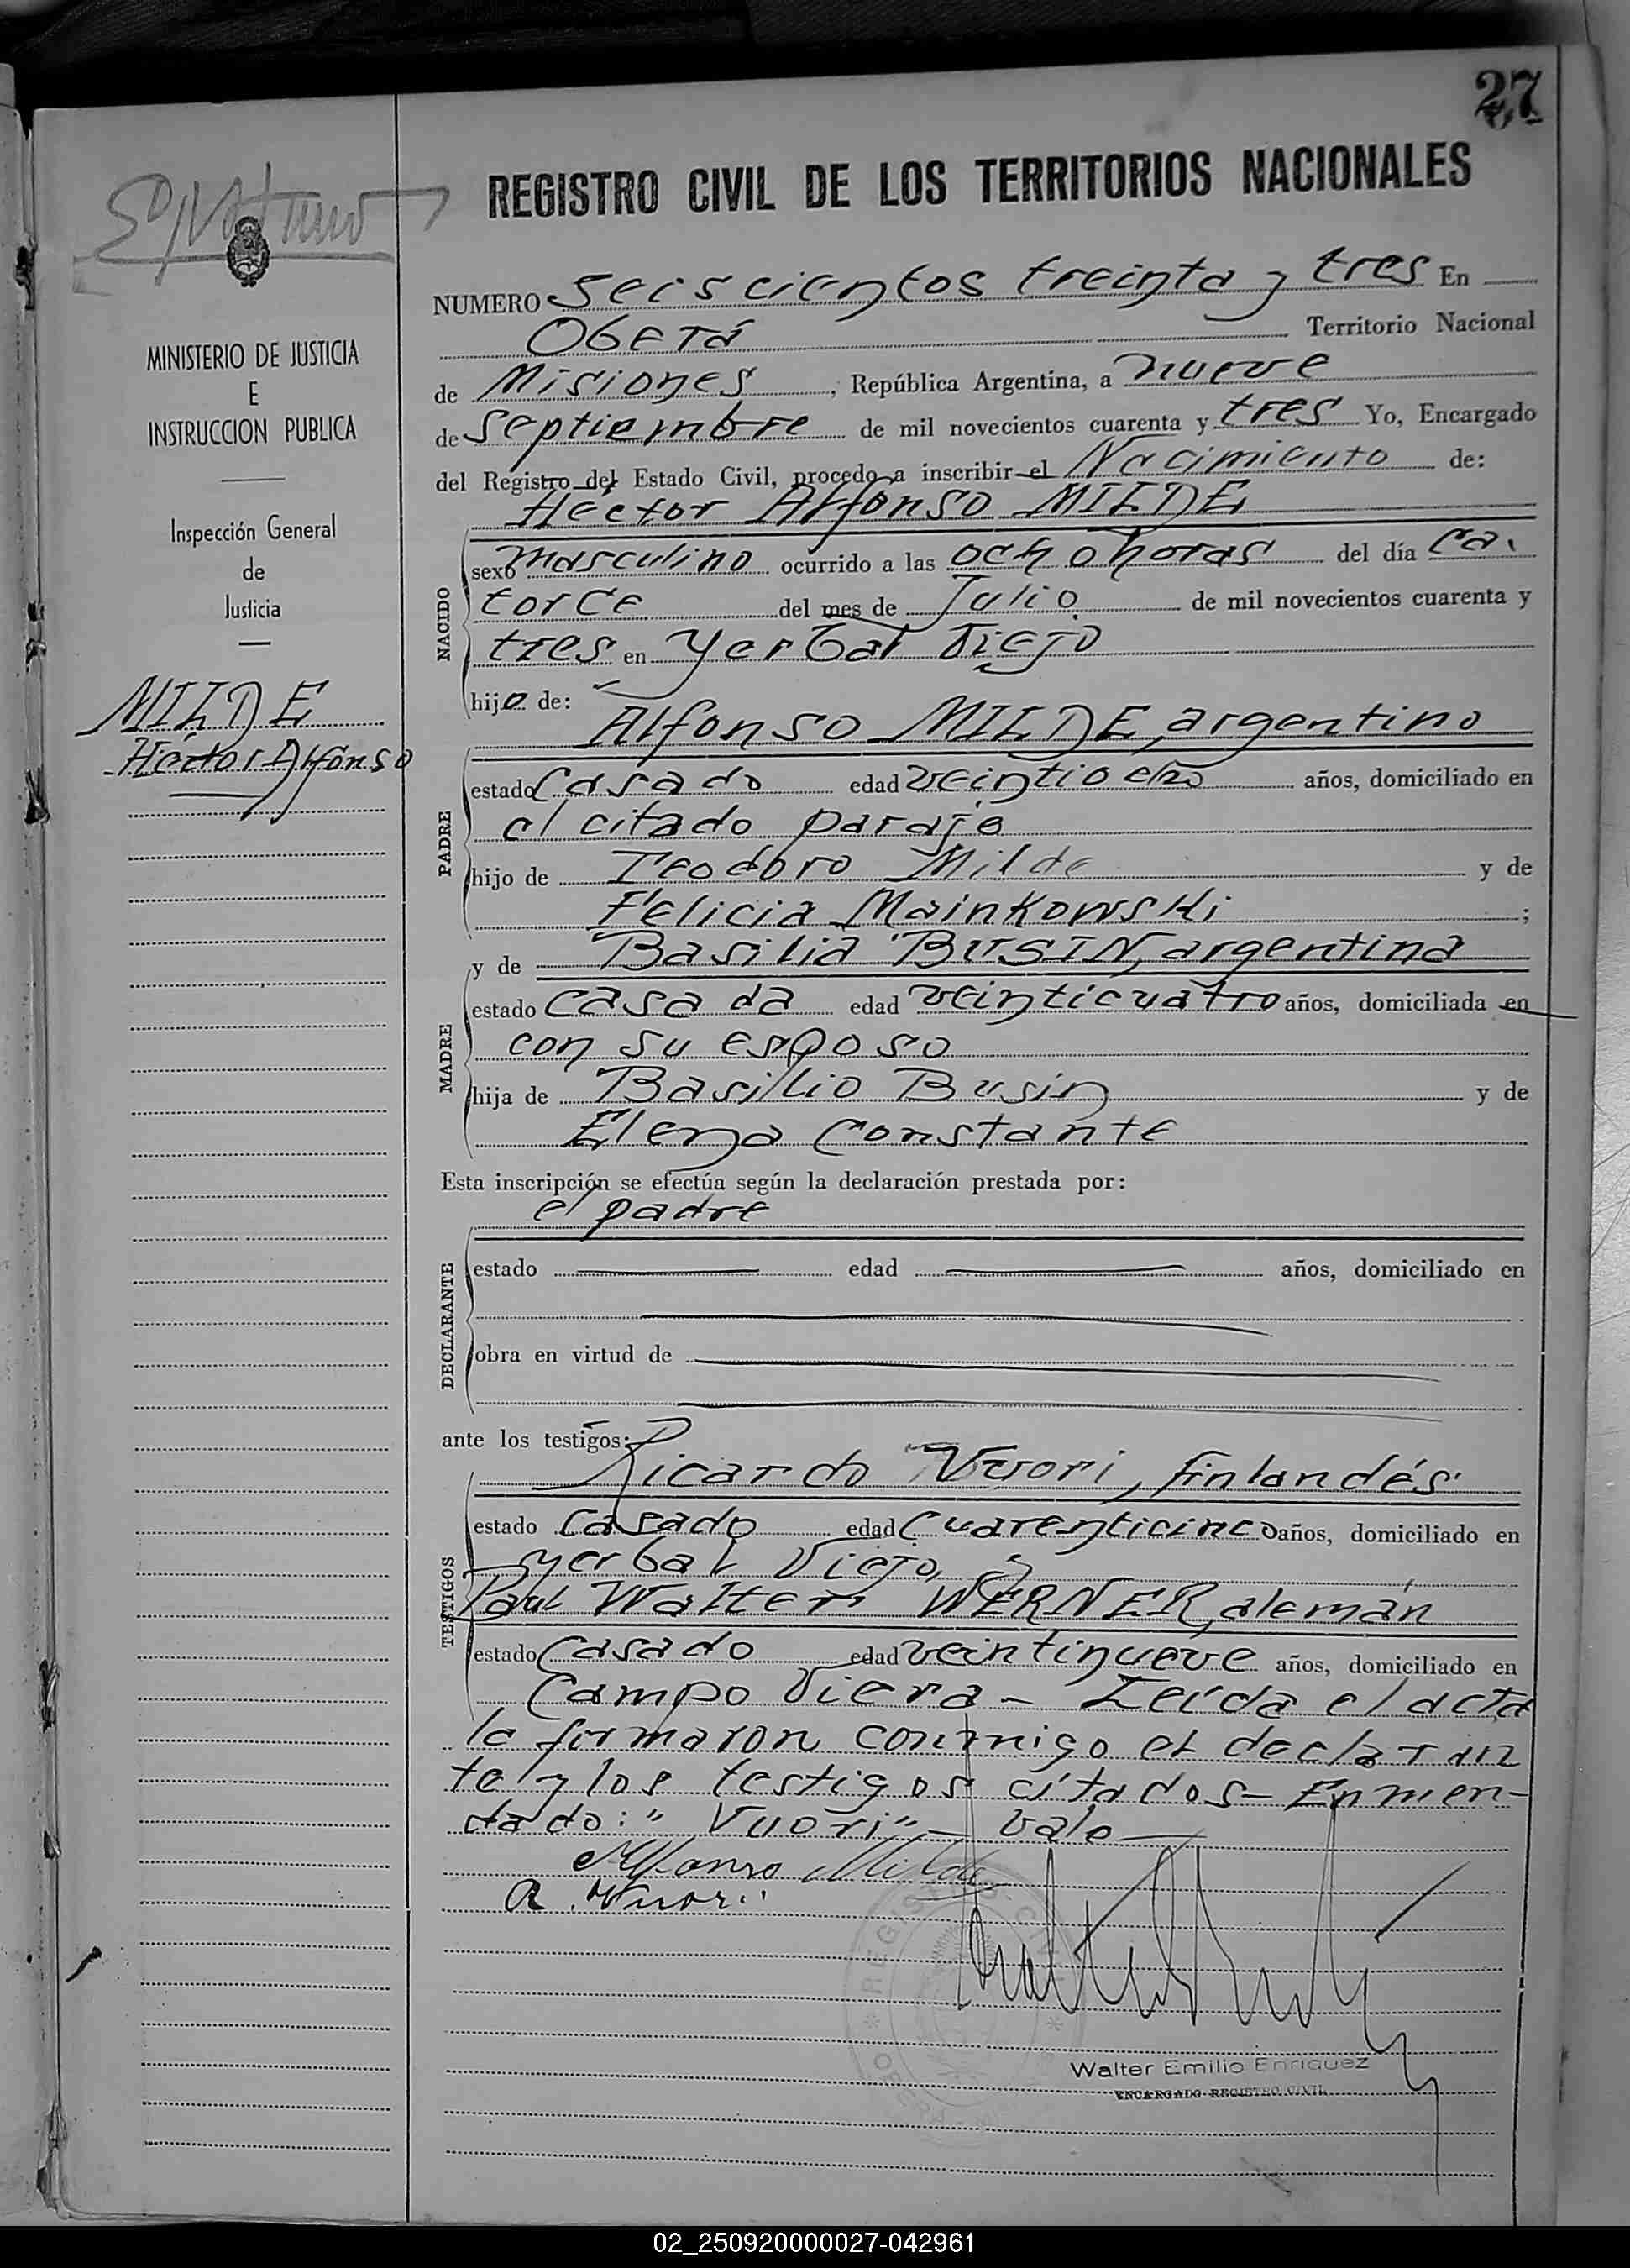 27
REGISTRO CIVIL DE LOS TERRITORIOS NACIONALES
MINISTERIO DE JUSTICIA
E
INSTRUCCION PUBLICA
Inspección General
de
Justicia
MILDE
Héctor Alfonso
NUMERO Seiscientos treinta y tres En
Oberá Territorio Nacional
de Misiones, República Argentina, a nueve
de Septiembre de mil novecientos cuarenta y tres Yo, Encargado
del Registro del Estado Civil, procedo a inscribir el Nacimiento de:
Héctor Alfonso MILDE
NACIDO
sexo masculino ocurrido a las ocho horas del día ca-
torce del mes de Julio de mil novecientos cuarenta y
tres en Yerbal Viejo
hijo de:
Alfonso MILDE, argentino
PADRE
estado Casado edad veintiocho años, domiciliado en
el citado paraje
hijo de Teodoro Milde y de
Felicia Mainkowski;
y de Basilia BUSIN, argentina
MADRE
estado casada edad veinticuatro años, domiciliada en
con su esposo
hija de Basilio Busin y de
Elena Constante
Esta inscripción se efectúa según la declaración prestada por:
el padre
DECLARANTE
estado edad años, domiciliado en
obra en virtud de
ante los testigos:
Ricardo Vuori, finlandés
TESTIGOS
estado casado edad cuarenticinco años, domiciliado en
Yerbal Viejo, y
Paul Walter WERNER, alemán
estado Casado edad veintinueve años, domiciliado en
Campo Viera - Leída el acta
la firmaron conmigo el declaran
te y los testigos citados - Enmen-
dado: "Vuori" - vale
Alfonso Milde
R. Wuori
REGISTRO CIVIL
Walter Emilio Enriquez
ENCARGADO REGISTRO CIVIL
02_250920000027-042961